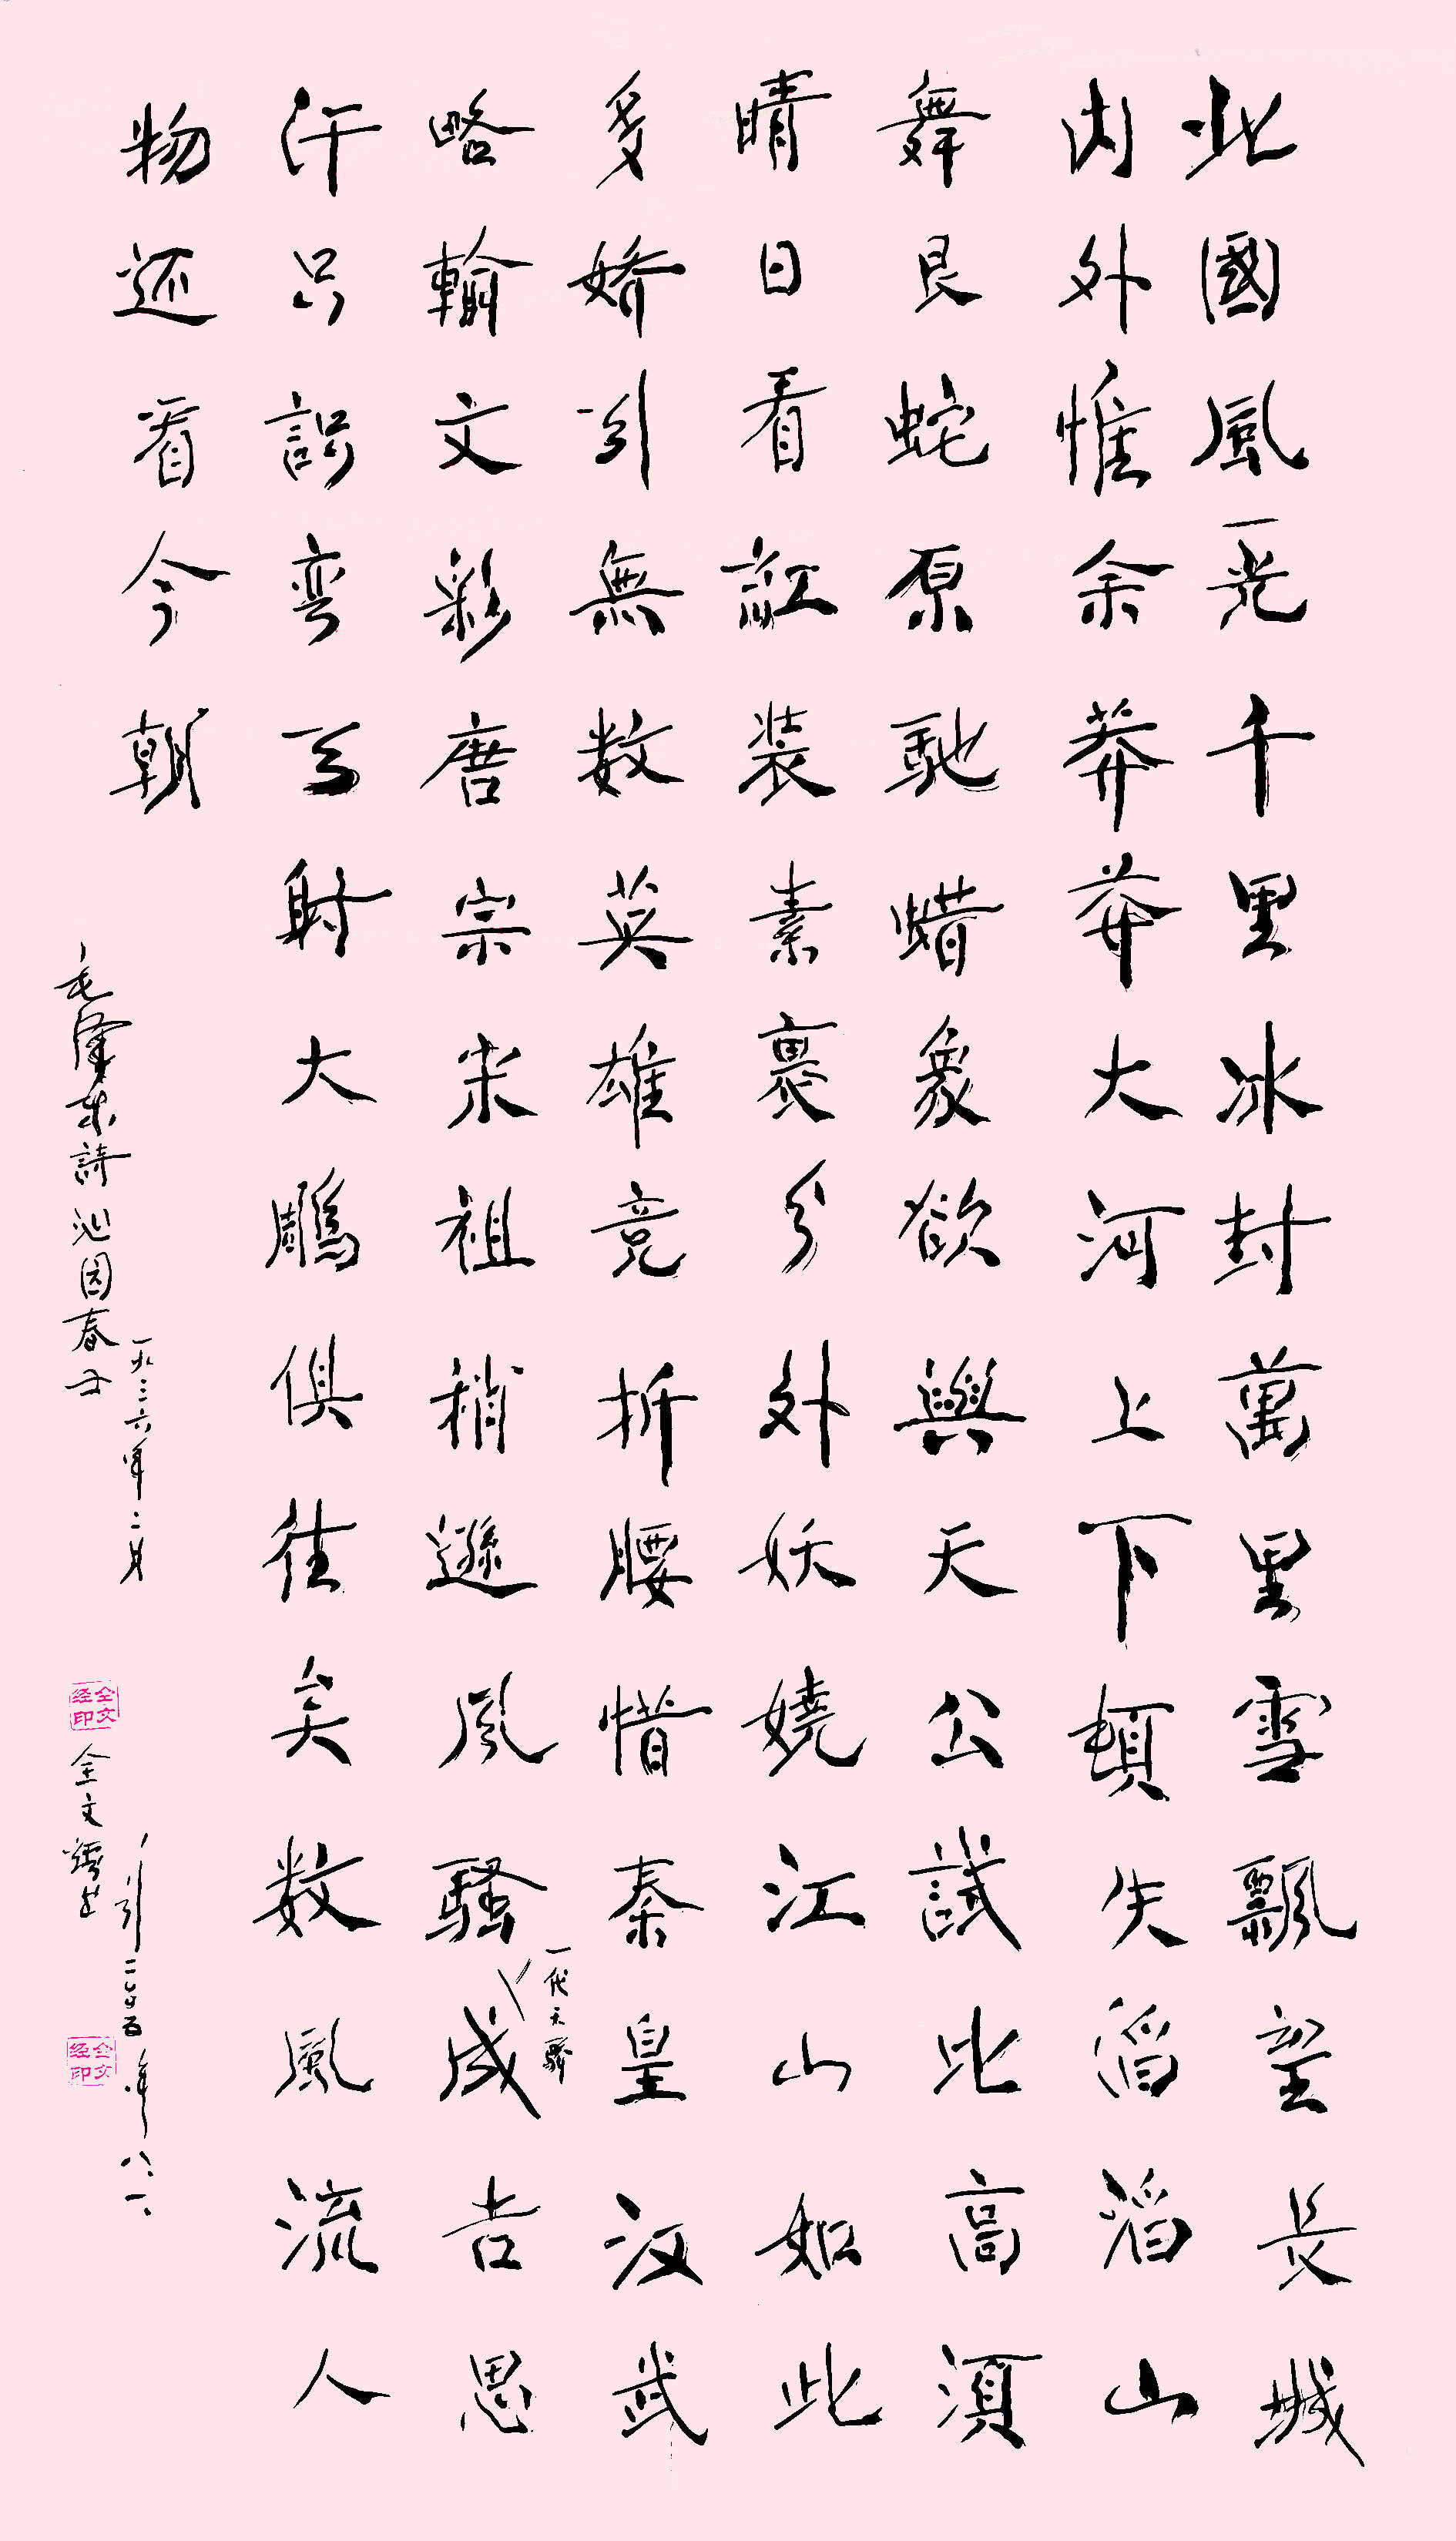 北國風光千里冰封萬里雪飄望長城
内外惟余莽莽大河上下頓失滔滔山
舞艮蛇原馳蜡象欲與天公試比高須
晴日看訌装素裹分外妖嬈江山如此
多娇引無数英雄竞折腰惜秦皇汉武
略輸文彩唐宗宋祖稍遜风騷成吉思
一代天骄
汗只識弯弓射大鵰俱往矣数風流人
物还看今朝
毛澤东詩沁园春
一九三六年二月
全文经印
全文
二〇〇五年八.一.
全文经印